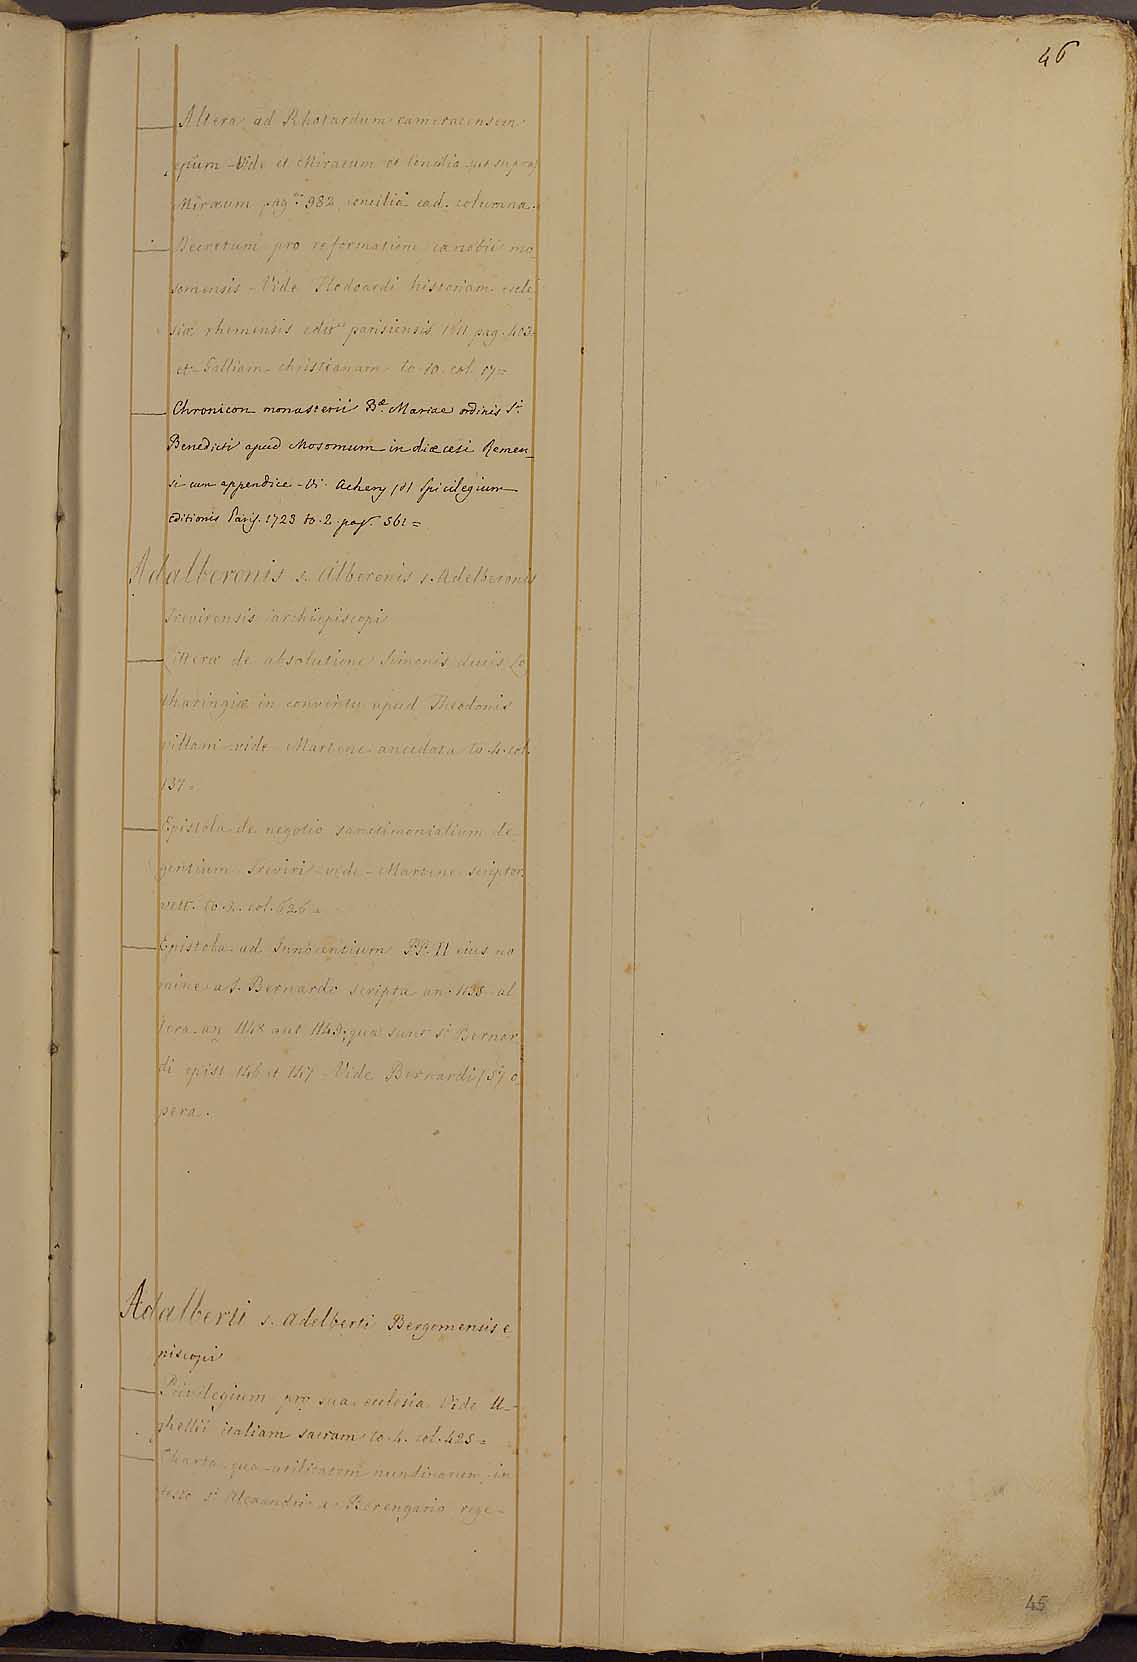 46
Altera ad Rhotardum cameracensem
epium - Vide et Miraeum et Concilia ut supra
Miraeum pag. 932 concilia ead. columna.
Decretum pro reformatione cænobii mo_
somensis - Vide Flodoardi historiam eccle_
siæ rhemensis edit. parisiensis 1611 pag. 403
et Galliam christianam to. 10. col. 17=
Chronicon monasterii Bæ. Mariae ordinis Sti.
Benedicti apud Mosomum in diœcesi Remen_
si cum appendice - Vi. Achery (d) Spicilegium
editionis Paris. 1723 to. 2. pag. 561=
Adalberonis s. Alberonis s. Adelberonis
Trevirensis archiepiscopi
Litteræ de absolutione Simonis ducis Lo
tharingiæ in conventu apud Theodonis
villam - vide Martene anecdota to. 4. col.
137.
Epistola de negotio sanctimonialium de_
gentium Treviri - vide - Martene scriptor.
vett. to. col. 626=
Epistola ad Innocentium PP. II eius no
mine a S. Bernardo scripta an. al
tera an 1148 aut 1149; quæ sunt Sti Bernar_
di epist. 146 et 147 - Vide Bernardi (S) o_
pera.
Adalberti s. Adelberti Bergomensis e_
piscopi
Privilegium pro sua ecclesia. Vide U_
ghellii italiam sacram to. 4. col. 425=
Charta qua utilitatem nundinarum in
festo Sti Alexandri a Berengario rege_
45